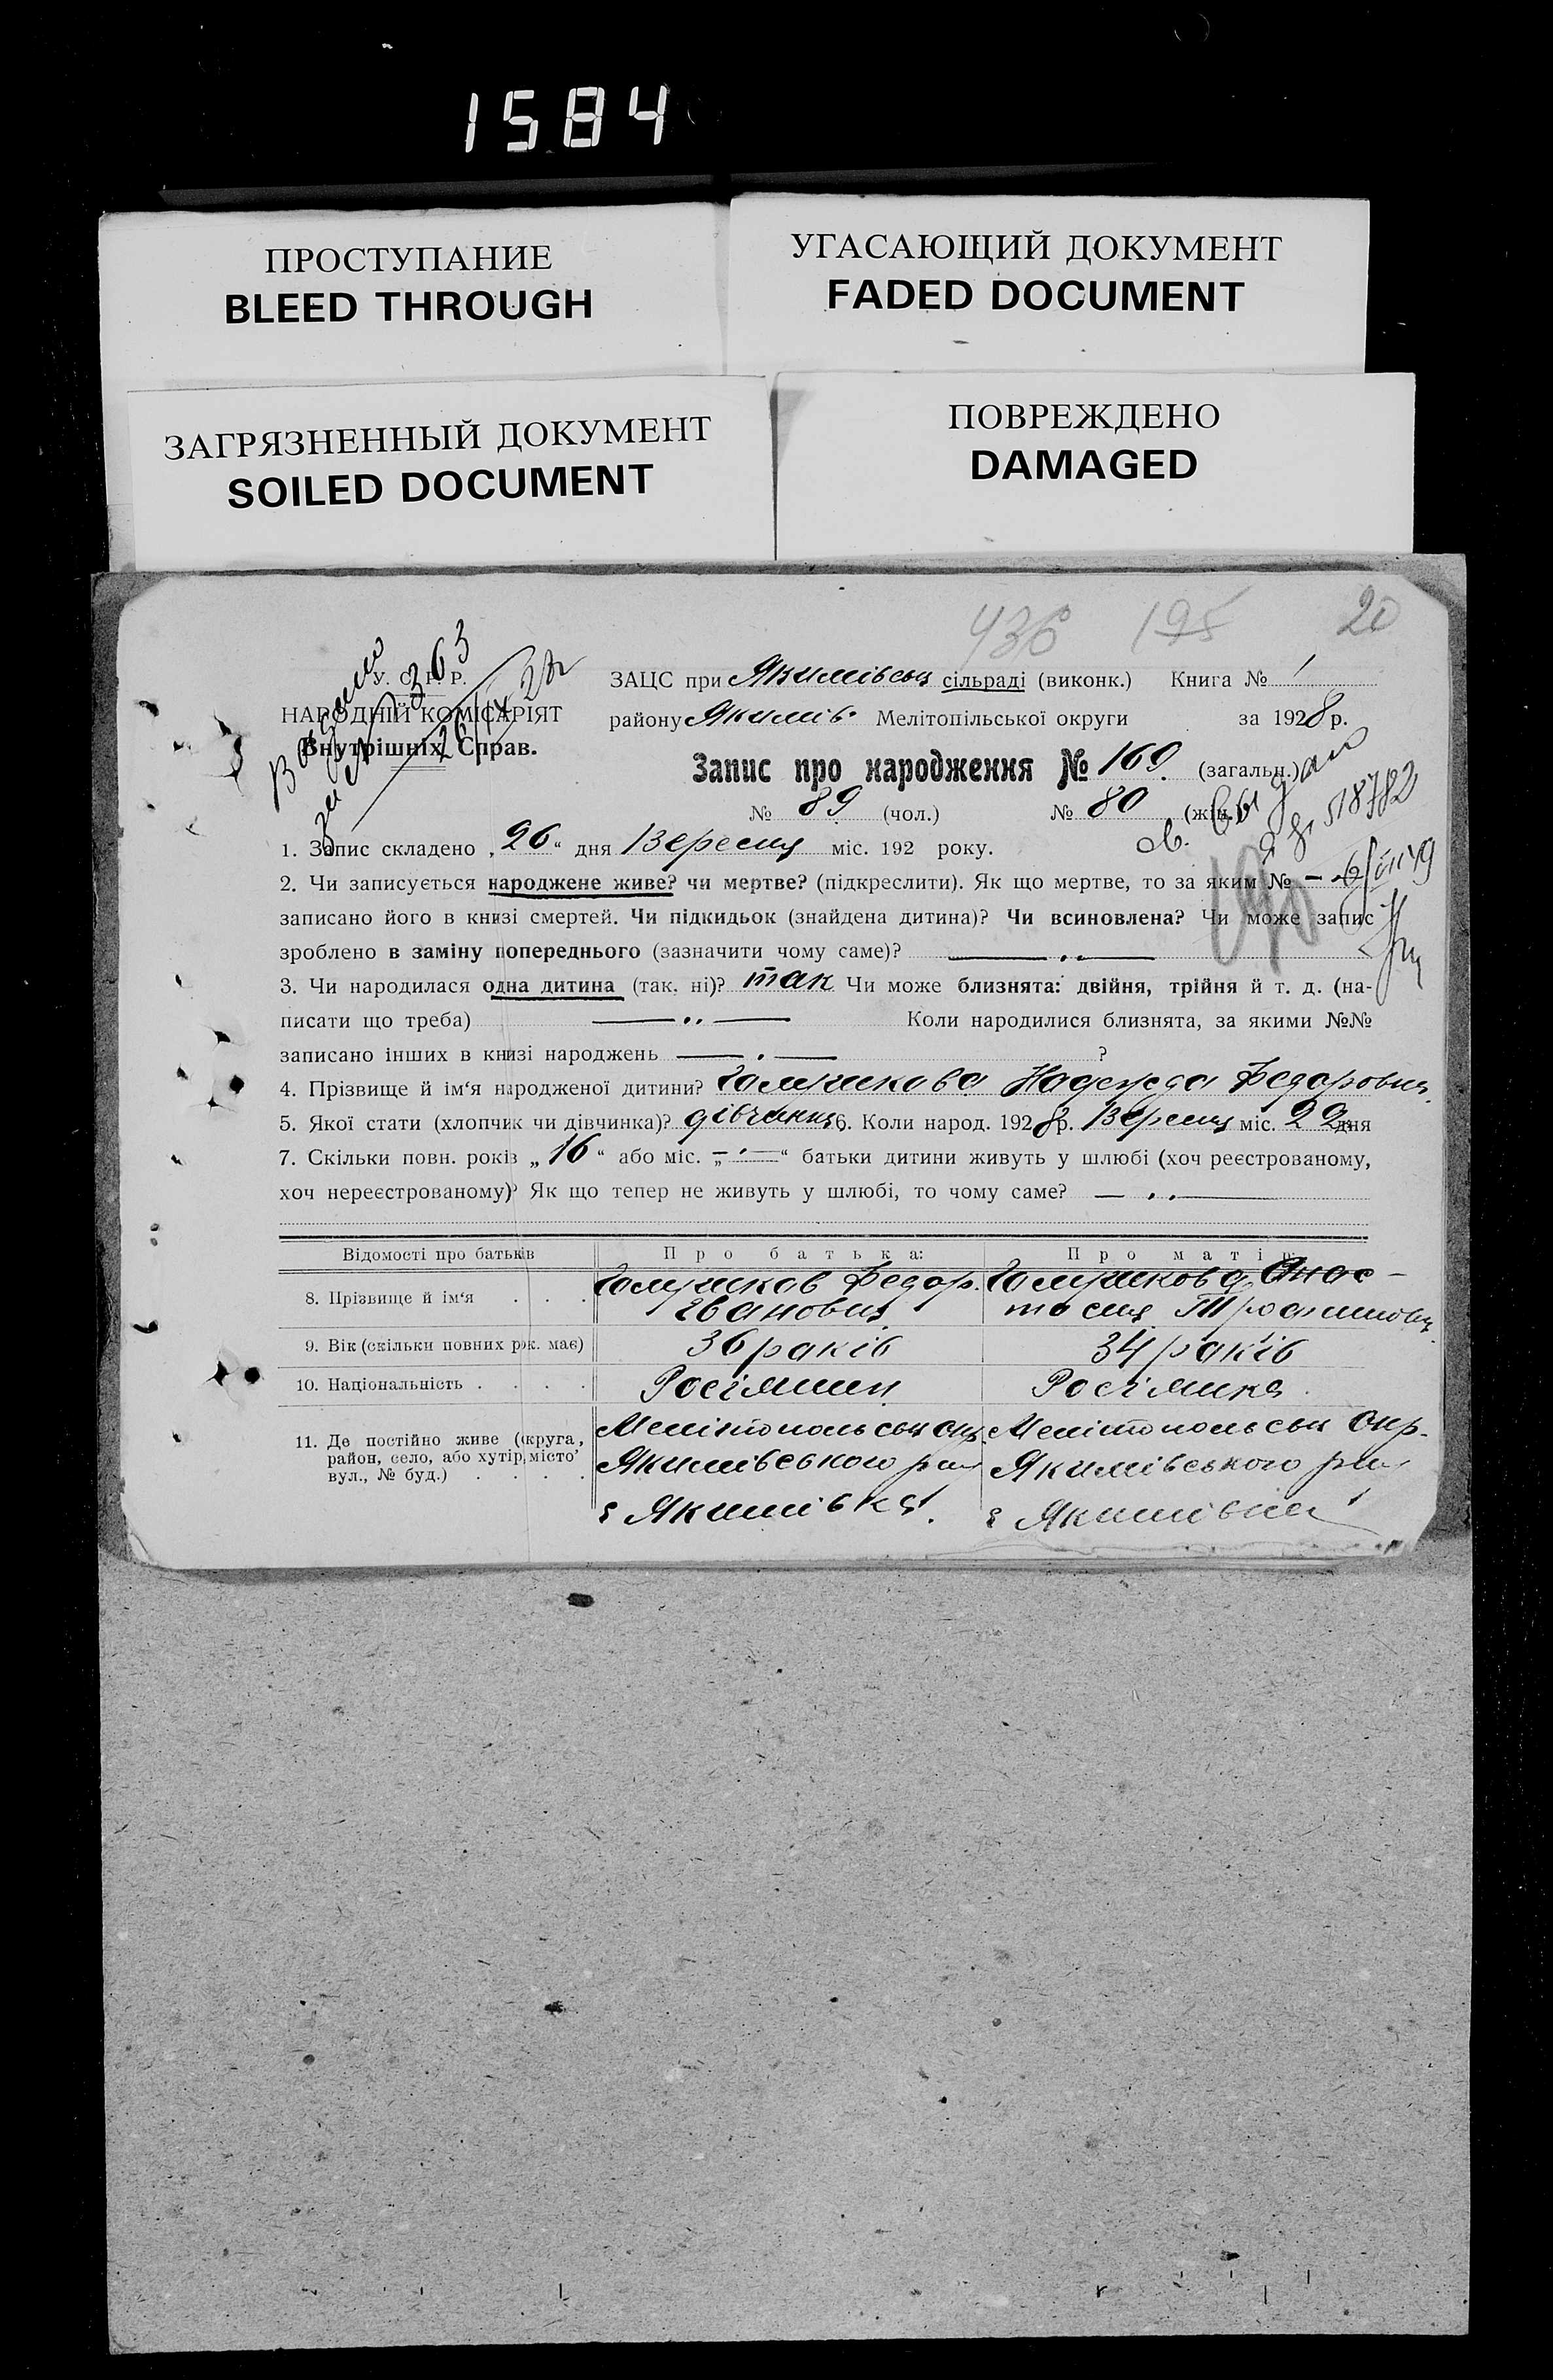 1584
ПРОСТУПАНИЕ
BLEED THROUGH
УГАСАЮЩИЙ ДОКУМЕНТ
FADED DOCUMENT
ЗАГРЯЗНЕННЫЙ ДОКУМЕНТ
SOILED DOCUMENT
ПОВРЕЖДЕНО
DAMAGED
436 195 20
У. С. Р. Р.
НАРОДНІЙ КОМІСАРІЯТ
Внутрішніх Справ.
Видано
за № 363
26/IX 28
ЗАЦС при Якимівськ сільраді (виконк.) Книга № 1
району Якимів. Мелітопільської округи за 1928 р.
Запис про народження № 169 (загальн.)
№ 89 (чол.) № 80 (жін.)
св. выдано
518782
1. Запис складено „26“ дня Вересня міс. 192 року.
2. Чи записується народжене живе? чи мертве? (підкреслити). Як що мертве, то за яким № —
записано його в книзі смертей. Чи підкидьок (знайдена дитина)? Чи всиновлена? Чи може запис
зроблено в заміну попереднього (зазначити чому саме)?
3. Чи народилася одна дитина (так, ні)? так Чи може близнята: двійня, трійня й т. д. (на-
писати що треба) Коли народилися близнята, за якими №№
записано інших в книзі народжень ?
4. Прізвище й ім‘я народженої дитини? Надежда Федоровна
5. Якої стати (хлопчик чи дівчинка)? дівчинка 6. Коли народ. 1928 р. Вересня міс. 22 дня
7. Скільки повн. років „16“ або міс. „—“ батьки дитини живуть у шлюбі (хоч реєстрованому,
хоч нереєстрованому)? Як що тепер не живуть у шлюбі, то чому саме?
Відомості про батьків Про батька: Про матір:
8. Прізвище й ім‘я . . . Федор Іванович Анас-
тасия Трофимовна
9. Вік (скільки повних рок. має) 36 років 34 років
10. Національність . . . . Росіянин Росіянка
11. Де постійно живе (округа, район, село, або хутір, місто’ вул., № буд.) . . . .
Мелітопольськ окр. Мелітопольськ Окр.
Якимівського рай Якимівського рай
с Якимівка с Якимівка